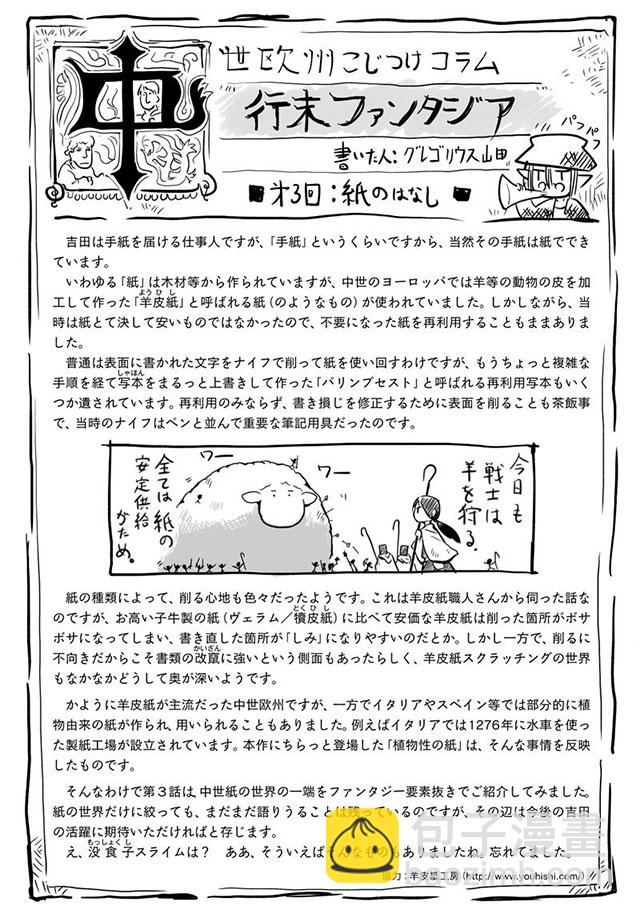 中世欧州こじつけコラム
行末ファンタジア
書いた人：グレゴリウス山田
■才3回：紙のはなし■
パフパフ
吉田は手紙を届ける仕事人ですが、「手紙」というくらいですから、当然その手紙は紙でできています。
いわゆる「紙」は木材等から作られていますが、中世のヨーロッパでは羊等の動物の皮を加
工して作った「羊皮紙」と呼ばれる紙（のようなもの）が使われていました。しかしながら、当
時は紙とて決して安いものではなかったので、不要になった紙を再利用することもままありま
した。
普通は表面に書かれた文字をナイフで削って紙を使い回すわけですが、もうちょっと複雑な
手順を経て写本をまるっと上書きして作った「パリンプセスト」と呼ばれる再利用写本もいく
つか遺されています。再利用のみならず、書き損じを修正するために表面を削ることも茶飯事
で、当時のナイフはペンと並んで重要な筆記用具だったのです。
今日も
戦士は
羊を狩る。
ワー
ワー
全ては紙の
安定供給
がため。
紙の種類によって、削る心地も色々だったようです。これは羊皮紙職人さんから伺った話な
のですが、お高い子牛製の紙（ヴェラム／犢皮紙）に比べて安価な羊皮紙は削った箇所がボサ
ボサになってしまい、書き直した箇所が「しみ」になりやすいのだとか。しかし一方で、削るに
不向きだからこそ書類の改竄に強いという側面もあったらしく、羊皮紙スクラッチングの世界
もなかなかどうして奥が深いようです。
かように羊皮紙が主流だった中世欧州ですが、一方でイタリアやスペイン等では部分的に植
物由来の紙が作られ、用いられることもありました。例えばイタリアでは1276年に水車を使っ
た製紙工場が設立されています。本作にちらっと登場した「植物性の紙」は、そんな事情を反映
したものです。
そんなわけで第３話は、中世紙の世界の一端をファンタジー要素抜きでご紹介してみました。
紙の世界だけに絞っても、まだまだ語りうることは残っているのですが、その辺は今後の吉田
の活躍に期待いただければと存じます。
え、没食子スライムは？　ああ、そういえばそんなものもありましたね。忘れてました。
協力：羊皮紙工房（http://www.youhishi.com/）
包子漫畫
baozimh.com